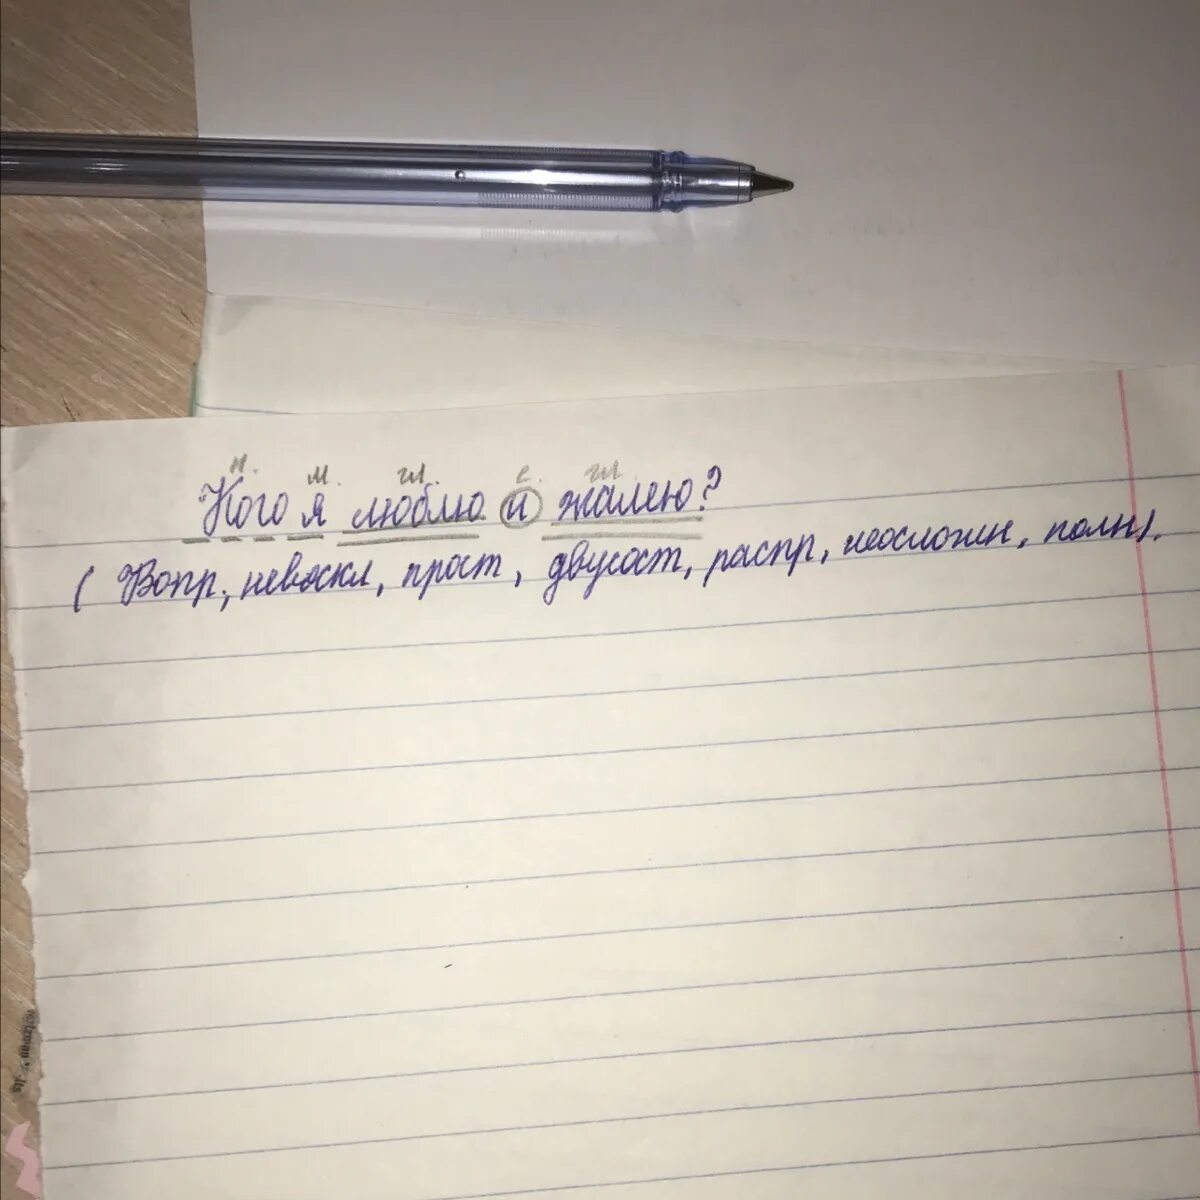 м. гл. с. гл.
Кого я люблю и жалею?
( Вопр, невоскл, прост, двусост, распр, неосложн, полн).